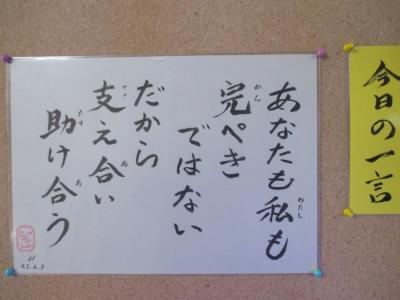 今日の一言
あなたも私も
わたし
完ぺき
かん
ではない
だから
支え合い
ささ
あ
助け合う
たす
あ